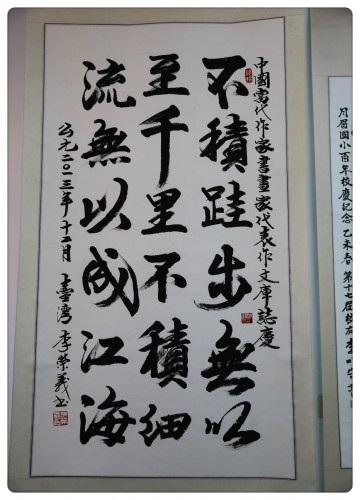 中國當代作家書畫家代表作文庫誌慶
不積跬步無以
至千里不積細
流無以成江海
公元二〇一三年十二月 臺灣 李榮義书
月眉國小百年校慶紀念 乙未春 第十七屆